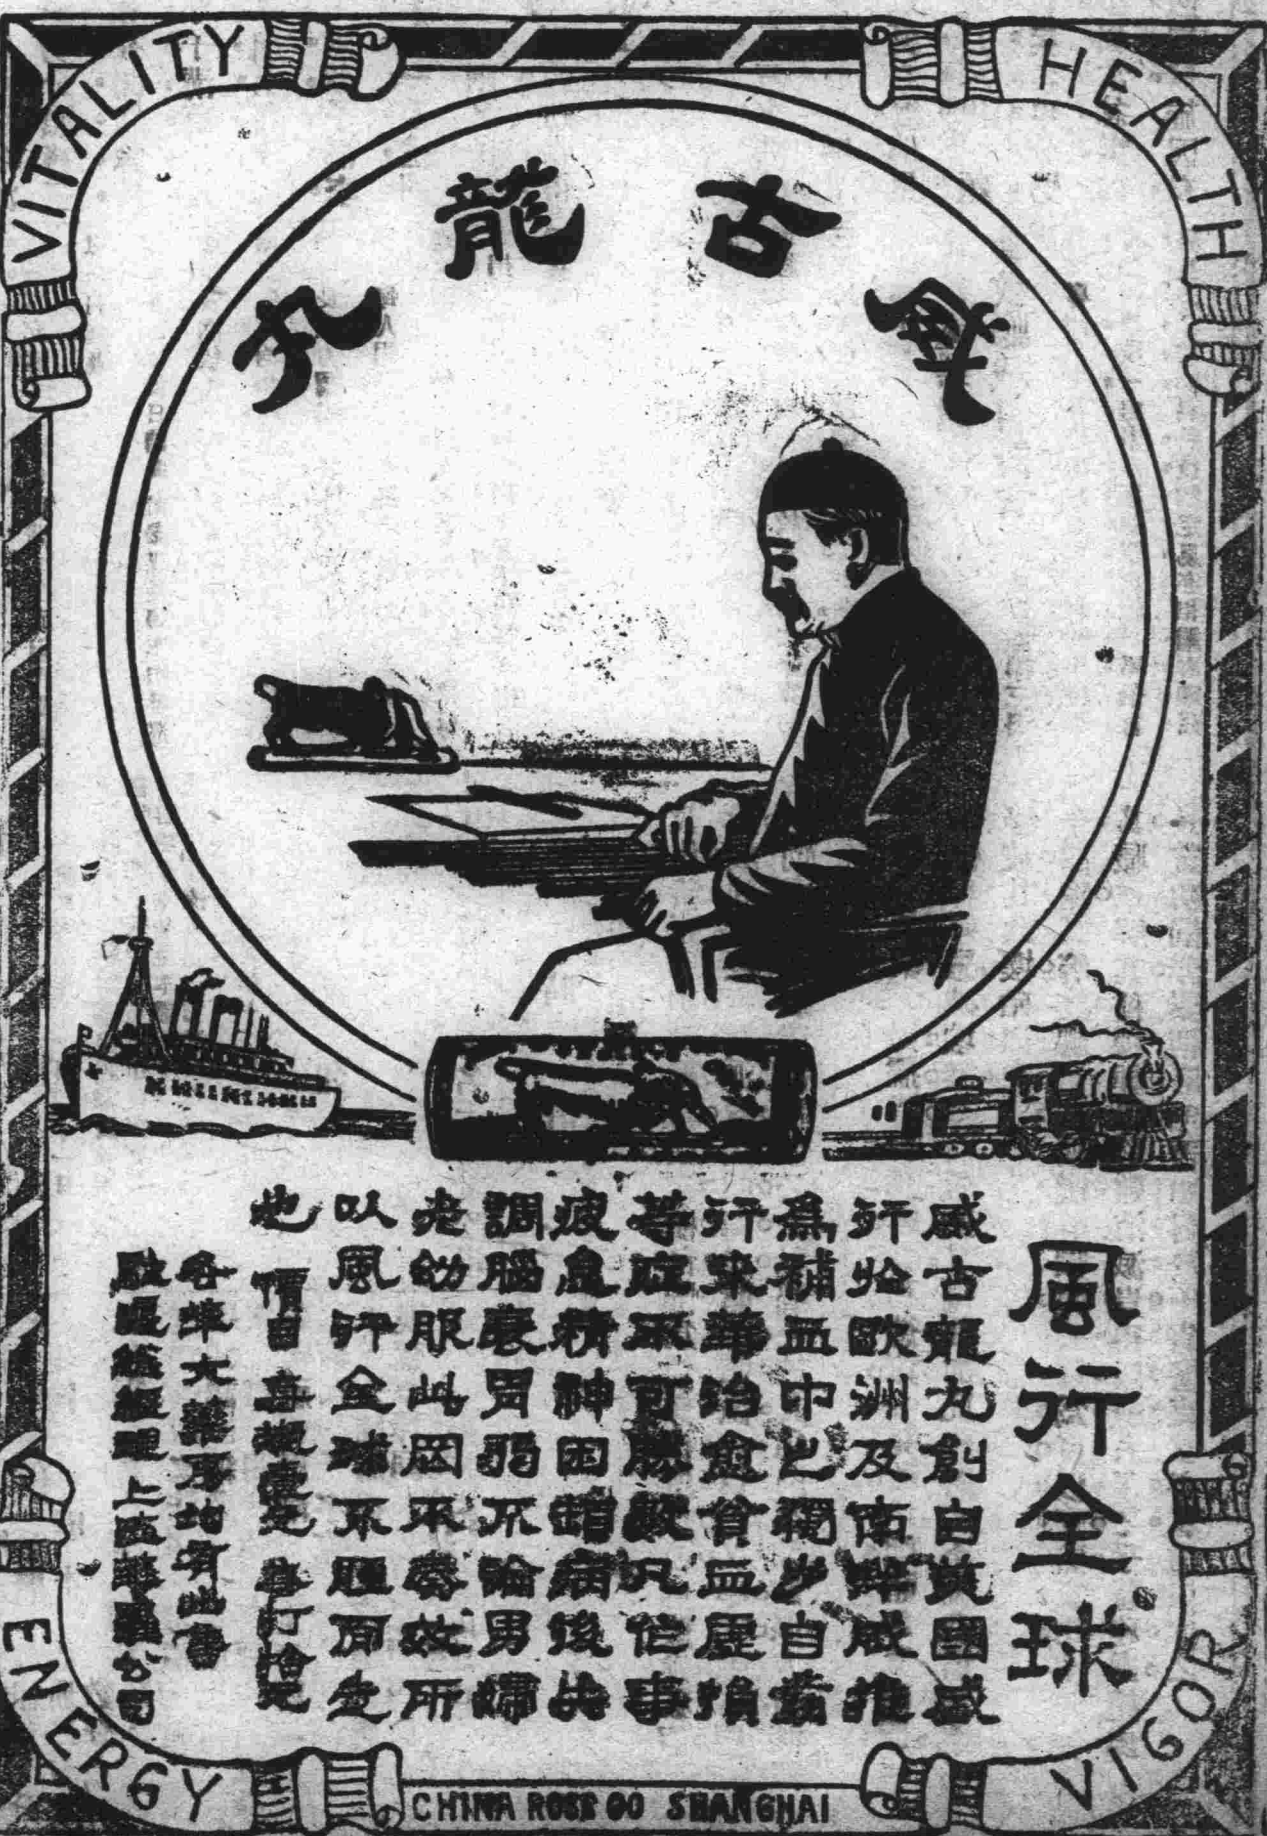 VITALITY
HEALTH
威古龍丸
風行全球
威古龍丸創自英國盛
行於歐洲及南畔咸推
為補血中之獨步自發
行來華治愈貧血虛損
等症不可勝數凡作事
疲倦精神困憊病後失
調腦衰胃弱不論男婦
老幼服此因不奏效所
以風行全球不脛而走
也
價目 每瓶壹元 每打拾元
各埠大藥房均有出售
經理 上海 公司
ENERGY
VIGOR
CHINA ROSE CO SHANGHAI